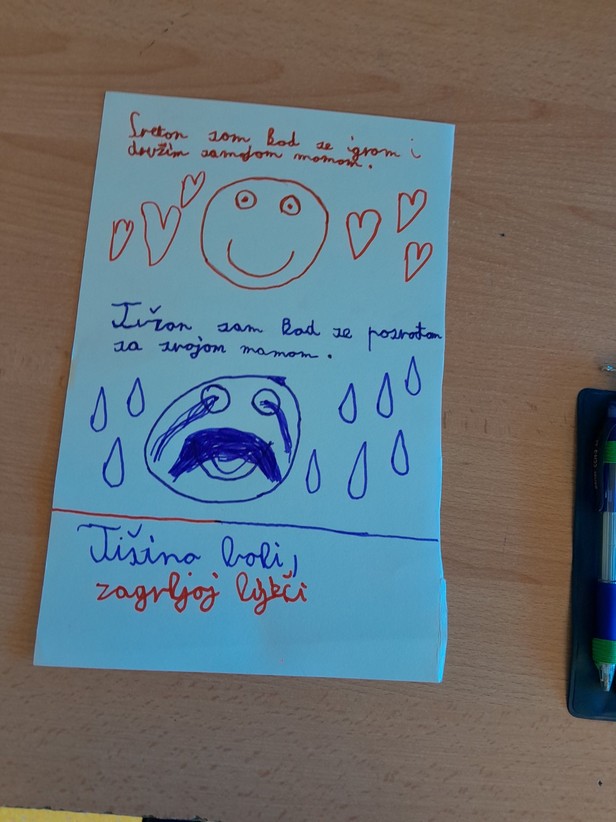 Sretan sam kad se igram i
družim sa mojom mamom.
Tužan sam kad se posvađam
sa svojom mamom.
Tišina boli,
zagrljaj liječi